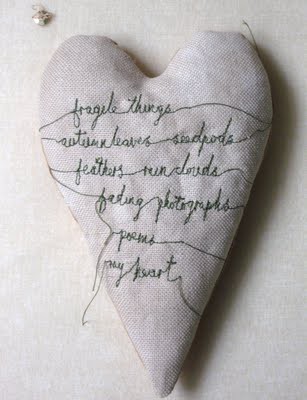 fragile things
autumn leaves seedpods
feathers rain clouds
fading photographs
poems
my heart